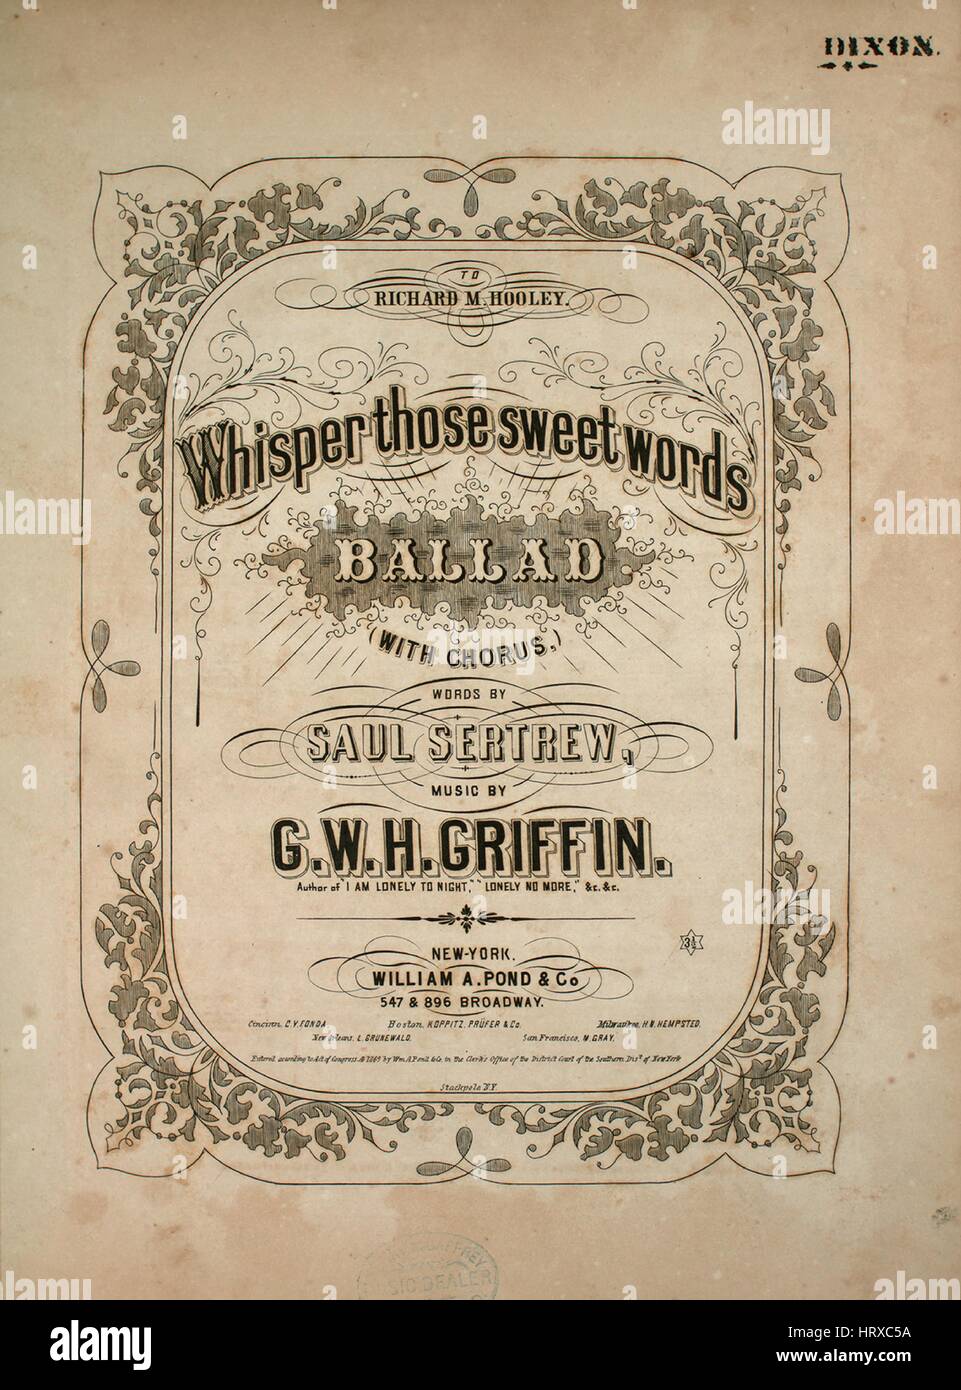 DIXON.
TO
RICHARD M. HOOLEY.
Whisper those sweet words
BALLAD
(WITH CHORUS,)
WORDS BY
SAUL SERTREW,
MUSIC BY
G.W.H. GRIFFIN.
Author of "I AM LONELY TO NIGHT," "LONELY NO MORE," &c. &c.
3½
NEW-YORK.
WILLIAM A. POND & Co
547 & 896 BROADWAY.
Cincinn. C.Y. FONDA Boston, KOPPITZ, PRÜFER & Co. Milwaukee, H.N. HEMPSTED.
New Orleans, L. GRUNEWALD. San Francisco, M. GRAY.
Entered according to Act of Congress AD 1869 by Wm. A. Pond & Co. in the Clerk's Office of the District Court of the Southern Dist. of New York
Stackpole N.Y.
MUSIC DEALER
alamy stock photo
HRXC5A
www.alamy.com